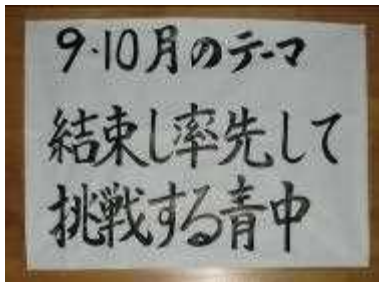 9・10月のテーマ
結束し率先して
挑戦する青中